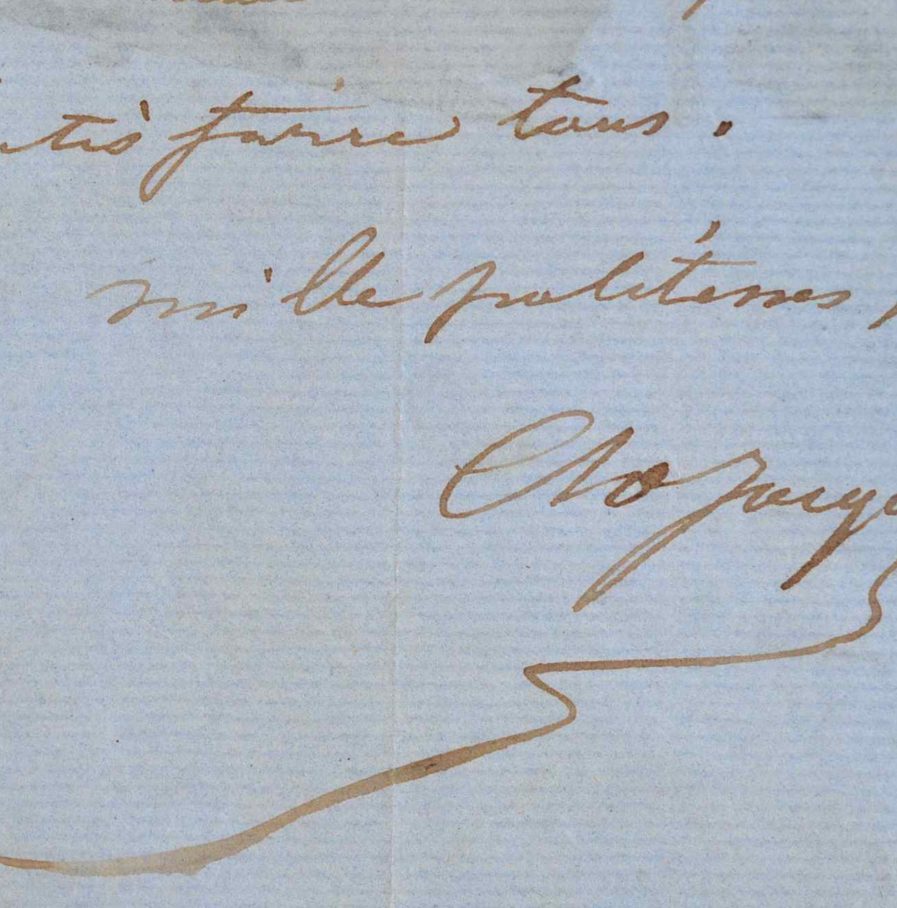 tisfaire tous.
mille politesses
Ch Jacque